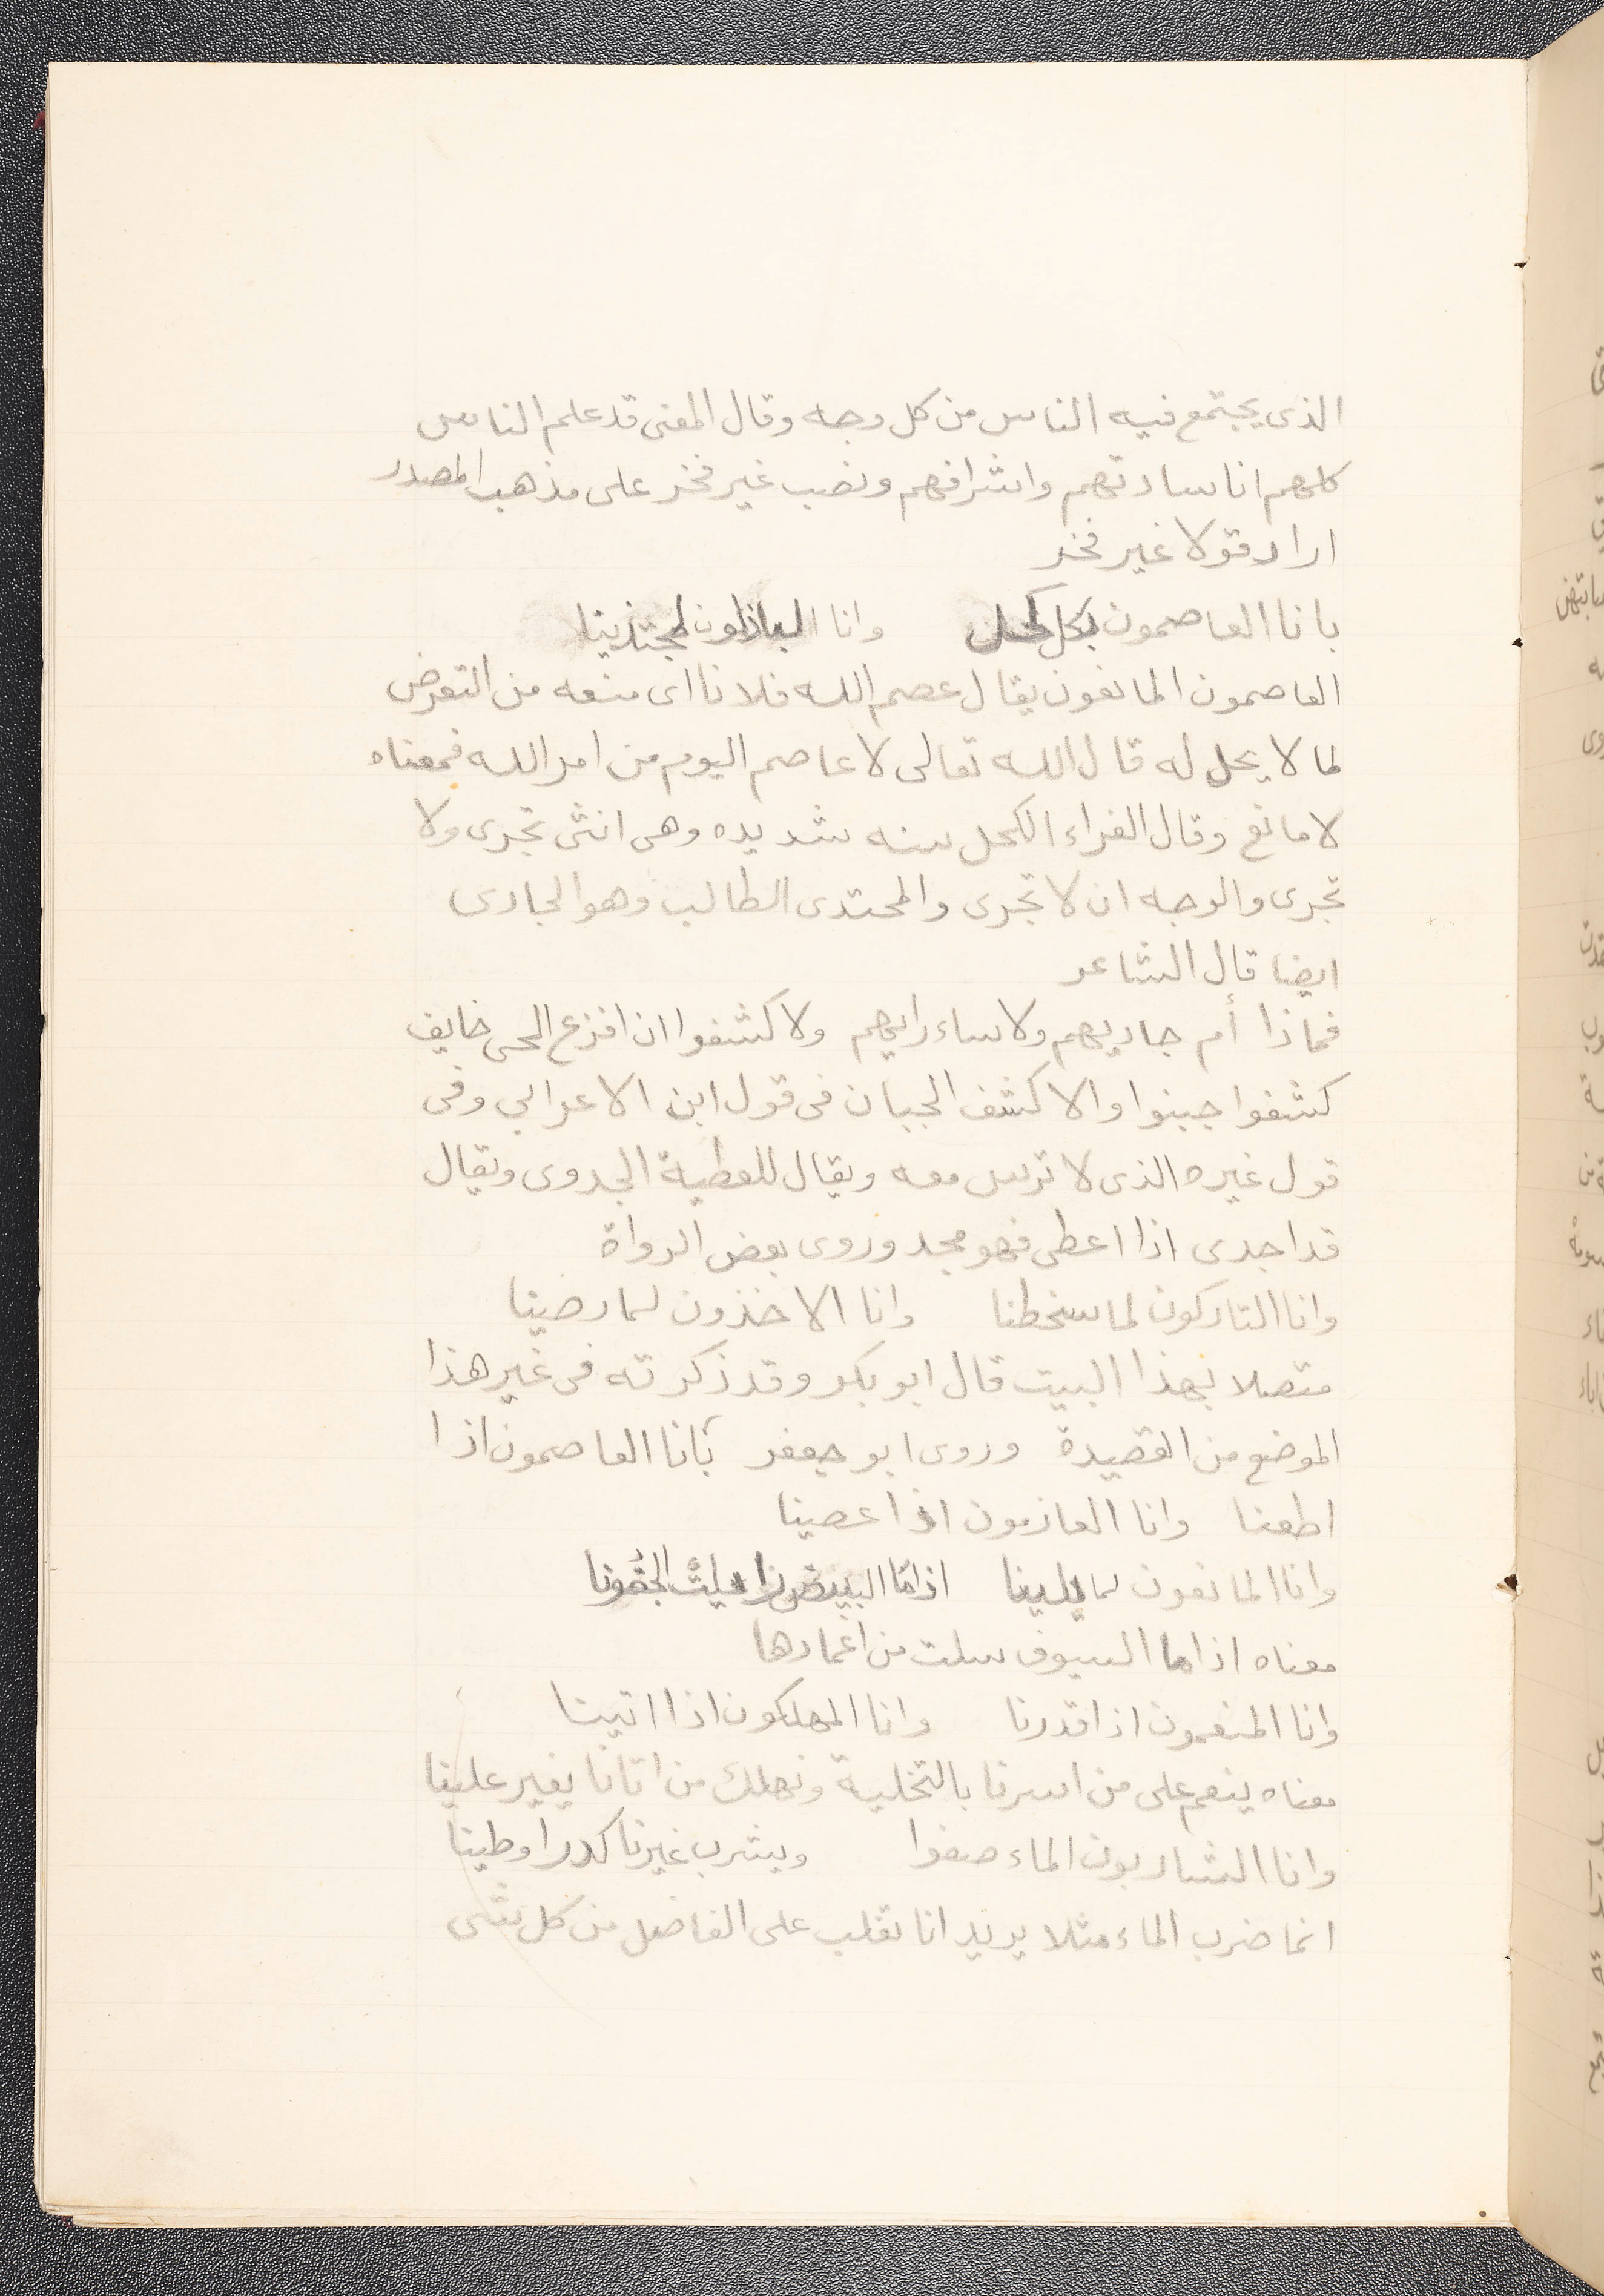 الذى يجتمع فيه الناس من كل وجه وقال المعنى قد علم الناس
كلهم انا سادتهم واشرافهم ونصب غير فخر على مذهب المصدر
اراد قولا غير فخر
بانا العاصمون بكل كحل وانا الباذلون لمجتدينا
العاصمون المانعون يقال عصم الله فلانا اى منعه من التعرض
لما لا يحل له قال الله تعالى لا عاصم اليوم من امر الله فمعناه
لا مانع وقال الفراء الكحل سنه شديده وهى انثى تجرى ولا
تجرى والوجه ان لا تجرى والمحتدى الطالب وهو الجادى
ايضا قال الشاعر
فماذا أم جاديهم ولا ساء رايهم ولا كشفوا ان افزع الحى خايف
كشفوا جبنوا والاكشف الجبان فى قول ابن الاعرابي وفى
قول غيره الذى لا ترس معه ويقال للعطية الجدوى ويقال
قد اجدى اذا اعطى فهو مجد وروى بعض الرواة
وانا التاركون لما سخطنا وانا الاخذون لما رضينا
متصلا بهذا البيت قال ابو بكر وقد ذكرته فى غير هذا
الموضع من القصيدة وروى ابو جعفر بّانا العاصمون اذا
اطعنا وانا العازمون اذا عصينا
وانا المانعون لما يلينا اذا ما البيض زايلت الجفونا
معناه اذا ما السيوف سلت من اغمادها
وانا المنعمون اذا قدرنا وانا المهلكون اذا اتينا
معناه ينعم على من اسرنا بالتخلية ونهلك من اتانا يغير علينا
وانا الشاربون الماء صفوا ويشرب غيرنا كدرا وطينا
انما ضرب الماء مثلا يريد انا نغلب على الفاضل من كل شى